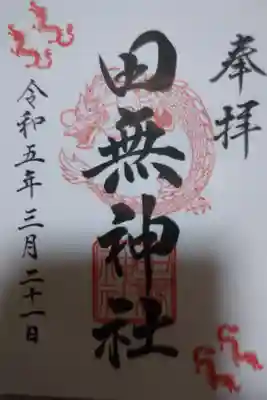 奉拝
田無神社
令和五年三月二十一日